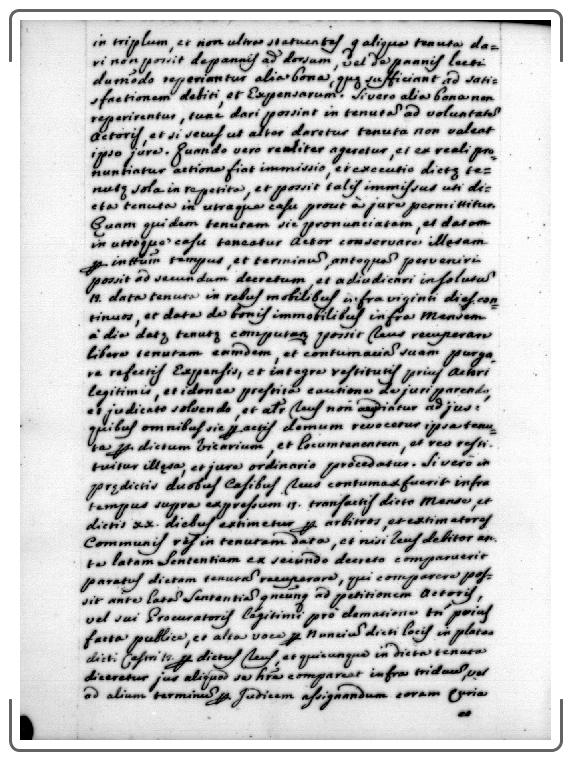 in triplum, et non ultra statuentes q aliqua tenuta da=
ri non possit de pannis ad dorsum, vel de pannis lecti
dummodo reperiantur alia bona, quę sufficiant ad satis=
sfactionem debiti, et Expensarum. Si vero alia bona non
reperirentur, tunc dari possint in tenutā ad voluntatē
Actoris, et si secus ut aliter daretur tenuta non valeat
ipso jure. Quando vero realiter ageretur, et ex reali pro=
nuntiatur actione fiat immissio, et executio dictę te=
nutę sola in re petita, et possit talis immissus uti di=
cta tenuta in utroque casu prout à jure permittitur.
Quam quidem tenutam sic pronunciatam, et datam
in utroque casu teneatur Actor conservare illesam
tempus, et terminū, antequā perveniri
possit ad secundum decretum, et adiudicari in solutū
data tenuta in rebus mobilibus infra viginti dies con=
tinuos, et data de bonis immobilibus infra Mensem
à die datę tenutę computan possit Reus recuperare
libere tenutam eamdem, et contumaciā suam purga=
re refectis Expensis, et integre restitutis prius Actori
legitimis, et idonea prestita cautione de juri parendo,
et judicato solvendo, et Reus non audiatur ad jus:
quibus omnibus sic actis demum revocetur ipsa tenu=
ta dictum Vicarium, et Locumtenentem, et reo resti=
tuitur illęsa, et jure ordinario procedatur. Si vero in
prędictis duobus Casibus Reus contumax fuerit infra
tempus supra expressum transactis dicto Mense, et
dictis xx. diebus extimetur arbitros, et extimatores
Communis res in tenutam data, et nisi Reus debitor an=
te latam Sententiam ex secundo decreto comparuerit
paratus dictam tenutā recuperare, qui comparere pos=
sit ante latā Sententiā ad petitionem Actoris,
vel sui Procuratoris legitimi pro clamatione prius
facta publice, et alta voce Nuncium dicti locis in platea
dicti Castri dictus Reus, et quicunque in dicta tenuta
diceretur jus aliquod se compareat infra triduū, vel
ad alium terminū Judicem assignandum coram Curia